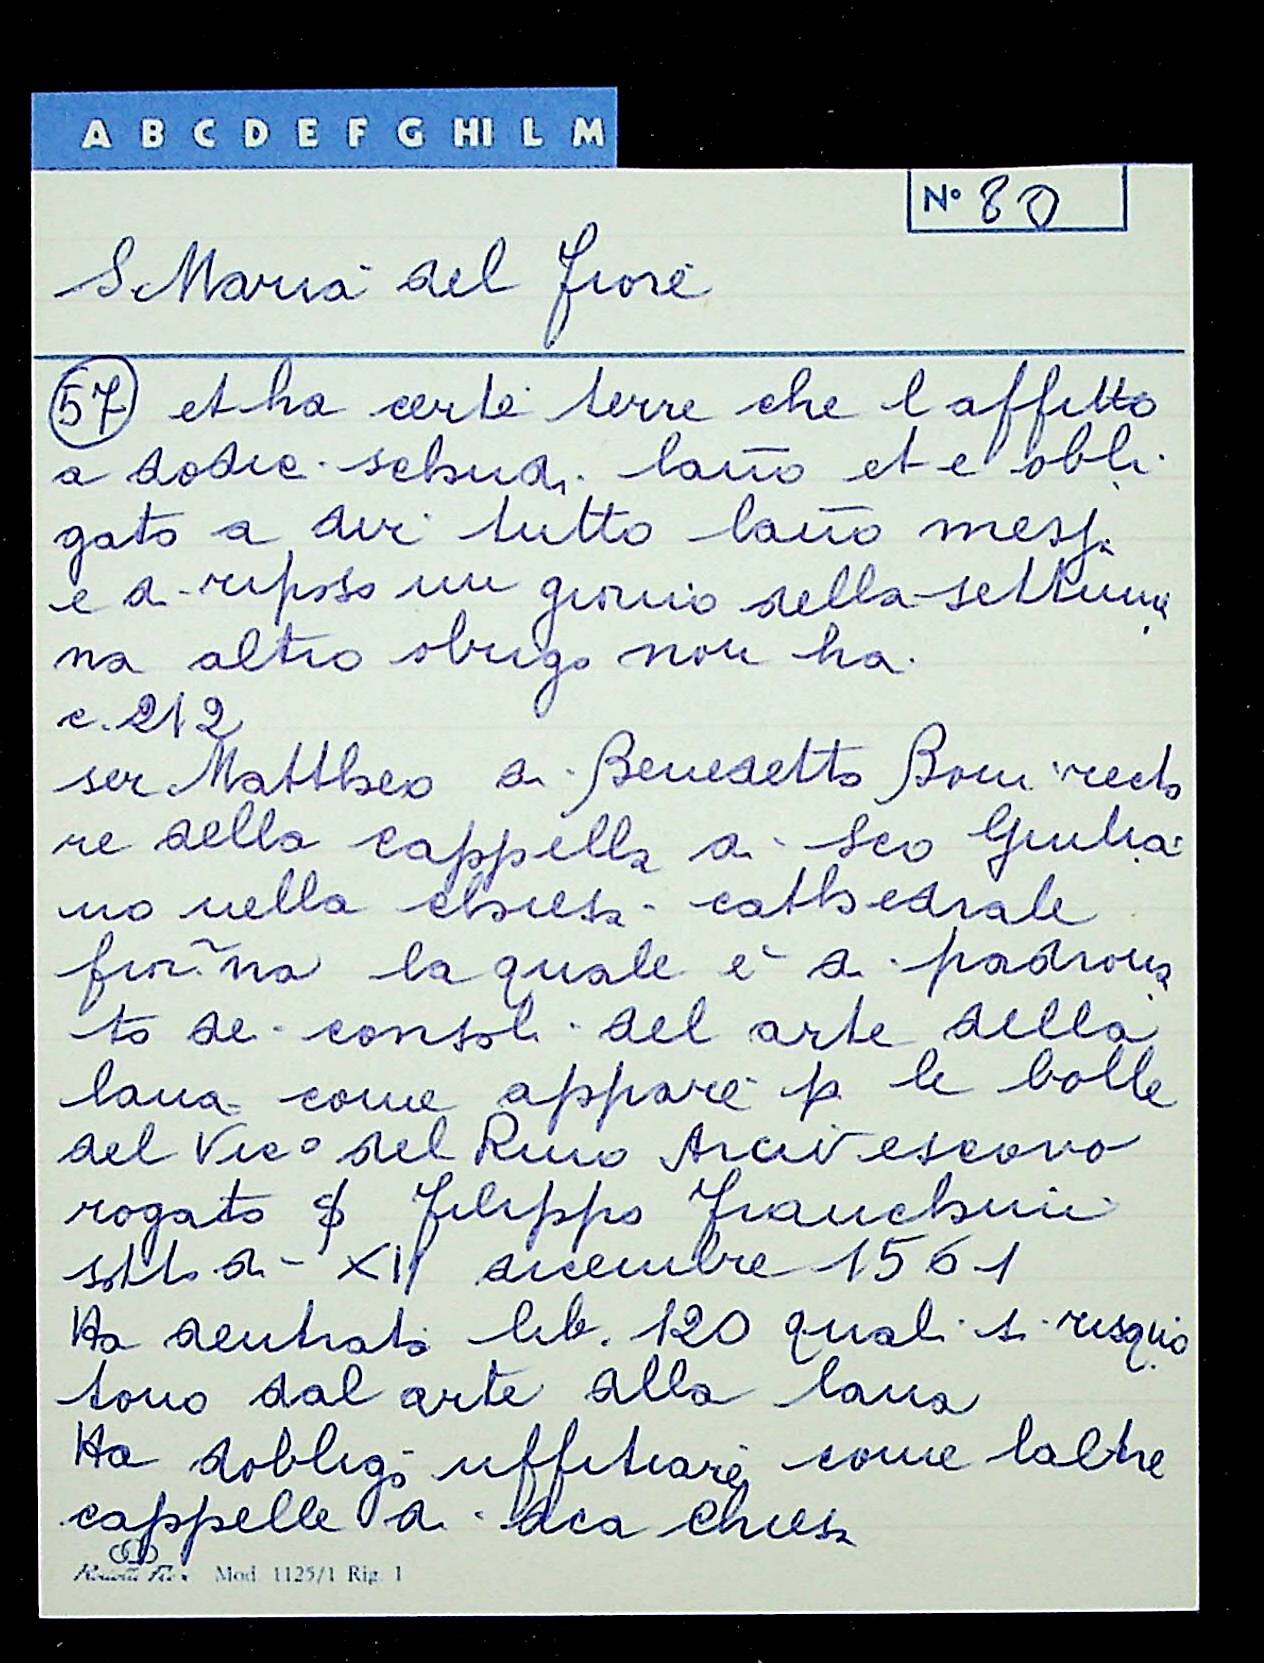 A B C D E F G HI L M
N° 80
S. Maria del Fiore
57 et ha certe terre che l affitto
a dodic. schudi lan̄o et e obli
gato a dir tutto lan̄o mess.
e di riposo un giorno della settima
na altro obrigo non ha.
c. 212
ser Mattheo di Benedetto Boni recto
re della cappella di Sco Giulia
no nella chiesa cathedrale
fior̃na la quale è di padrona
to de consoli del arte della
lana come appare p le bolle
del Vic° del Rmo Arcivescovo
rogato Filippo Franchini
sotto di XII dicembre 1561
Ha dentrata lib. 120 quali si risquo
tono dal arte della lana
Ha dobligo uffitiare come laltre
cappelle di dca chiesa
Mod. 1125/1 Rig. 1